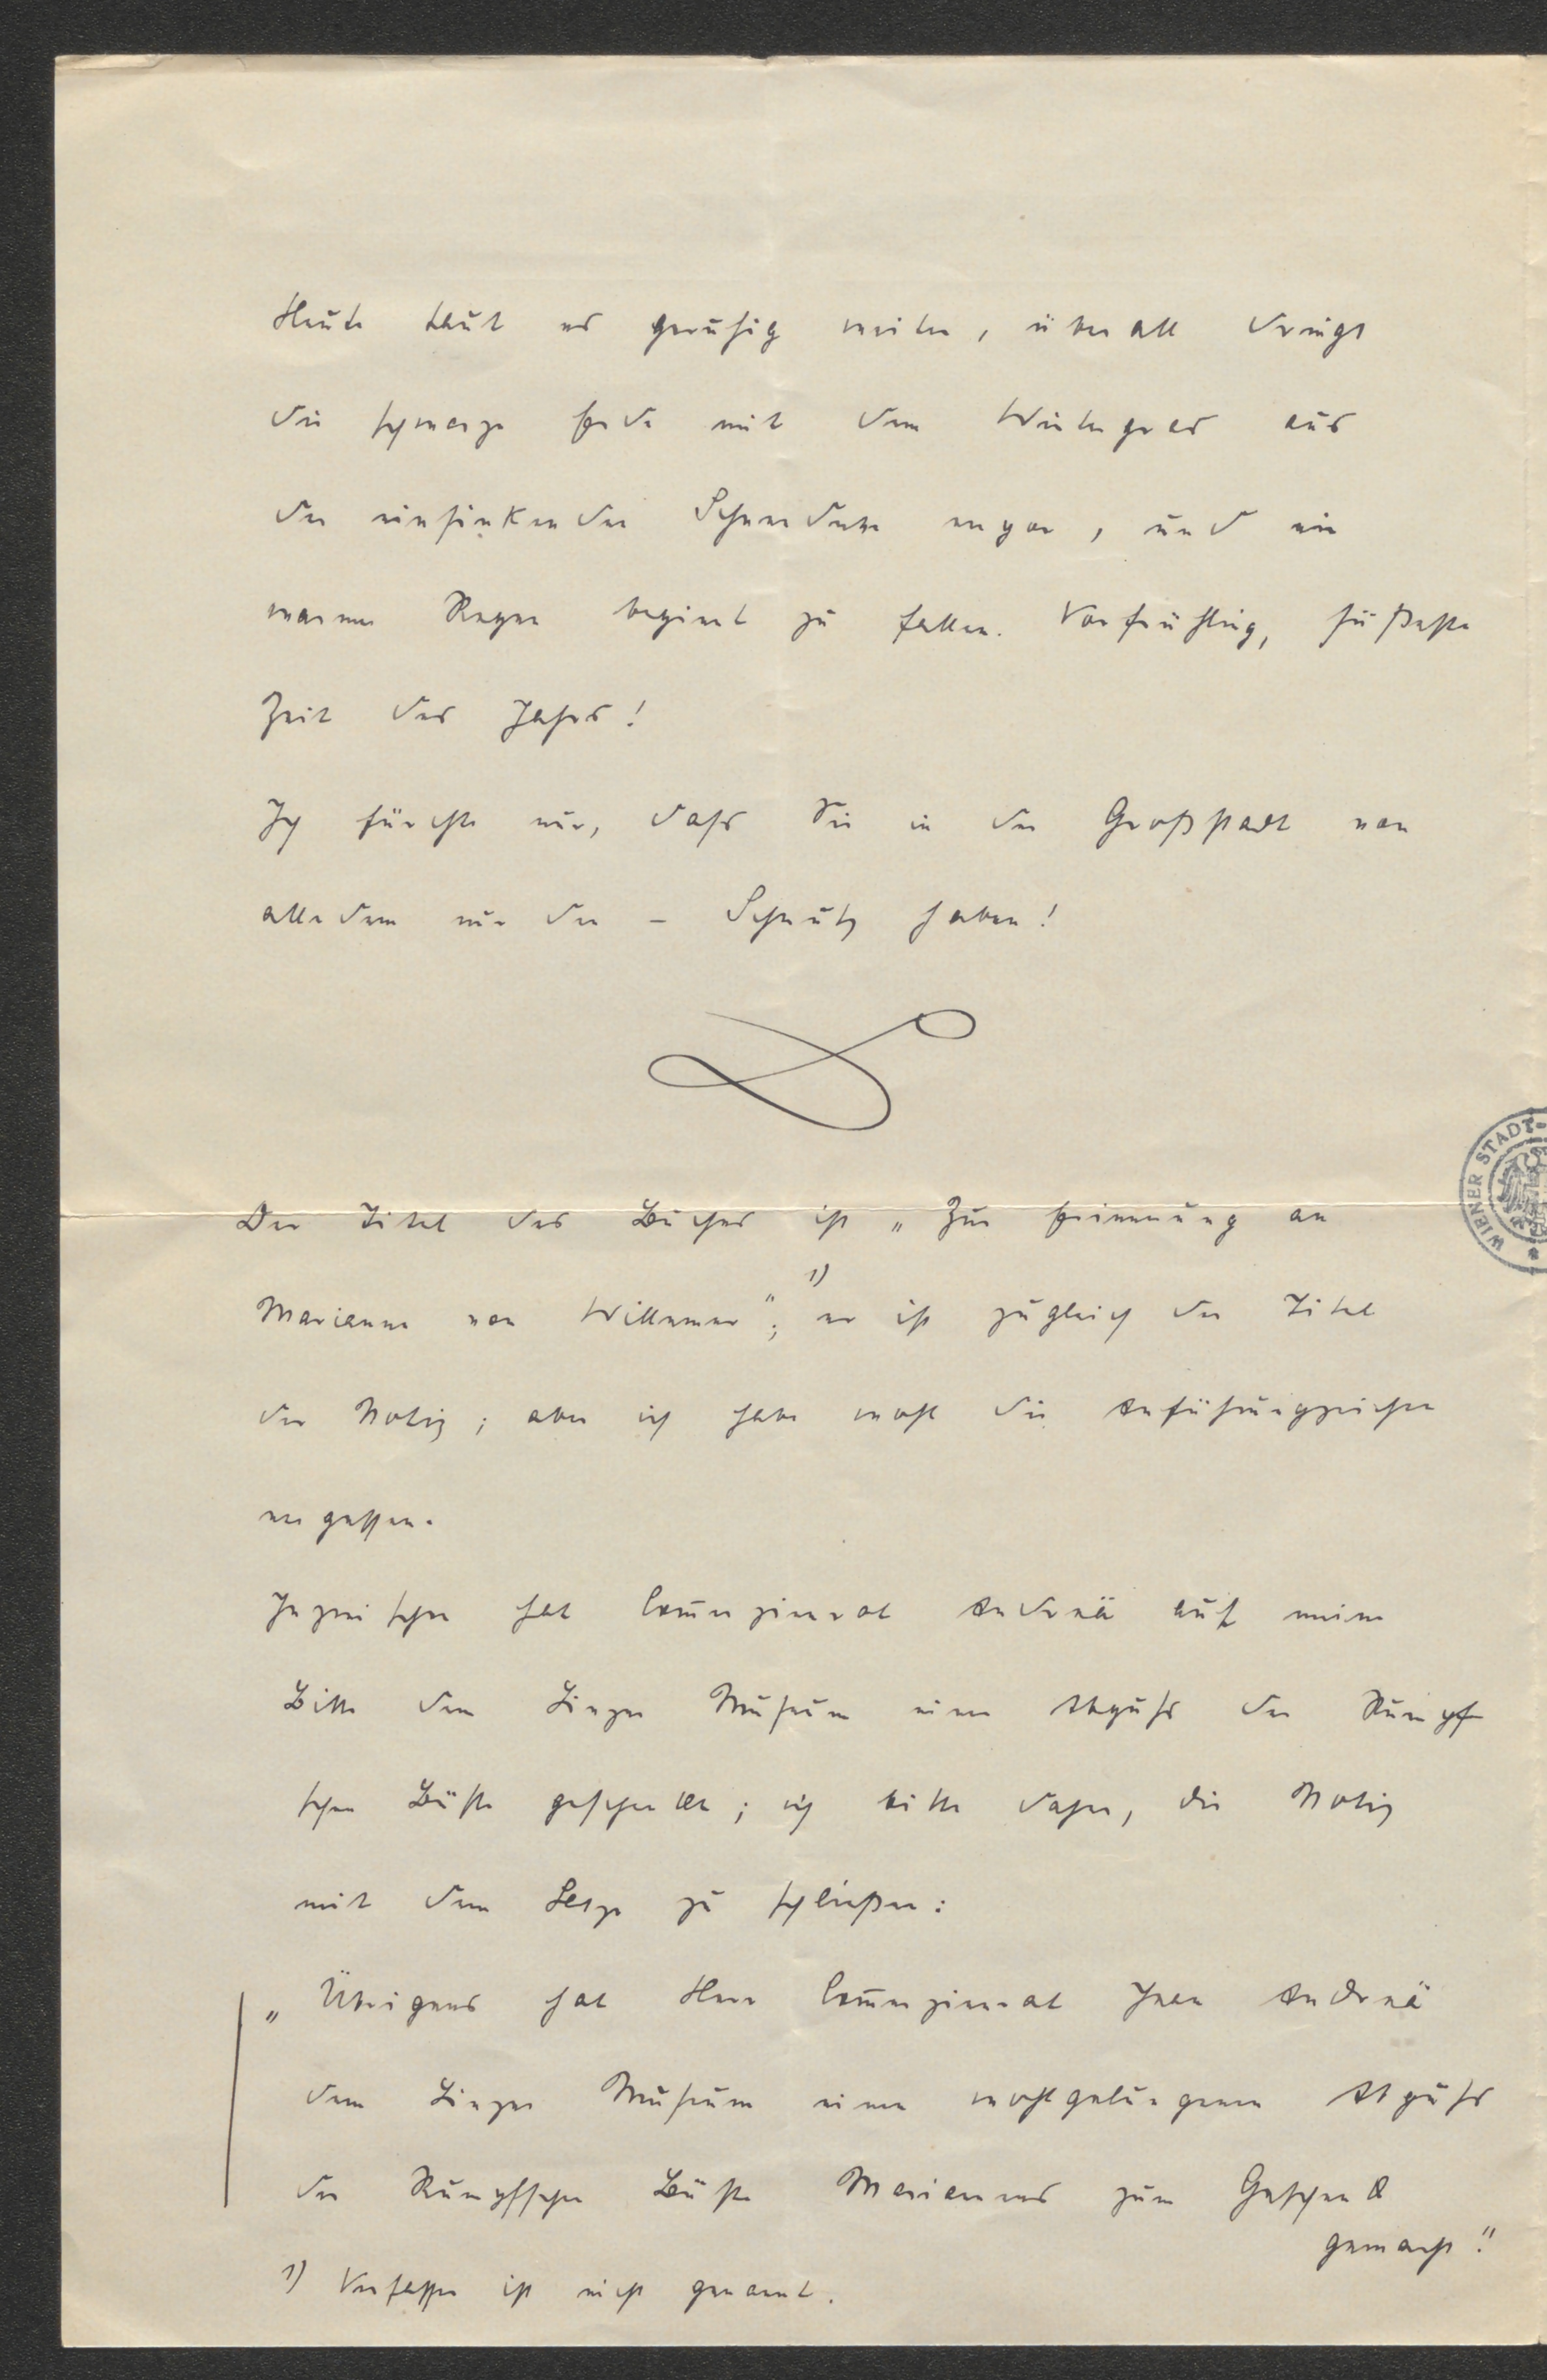 Heute taut es geruhig weiter, überall dringt
die schwarze Erde mit dem Wintergras aus
der einsinkenden Schneedecke empor, und ein
warmer Regen beginnt zu fallen. Vorfrühling, süßeste
Zeit des Jahres!
Ich fürchte nur, dass Sie in der Großstadt von
alledem nur den – Schmutz haben!
Der Titel des Buches ist „Zur Erinnerung an
Marianne von Willemer“; 1) er ist zugleich der Titel
der Notiz; aber ich habe wohl die Anführungszeichen
vergessen.
Inzwischen hat Com̅erzienrat Andreä auf meine
Bitte dem Linzer Museum einen Abguss der Rumpf
schen Büste geschenkt; ich bitte daher, die Notiz
mit dem Satze zu schließen:
„Übrigens hat Herr Com̅erzienrat Jean Andreä
dem Linzer Museum einen wohlgelungenen Abguss
der Rumpfschen Büste Mariannes zum Geschenk
gemacht.“
1) Verfasser ist nicht genannt.
WIENER STADT-